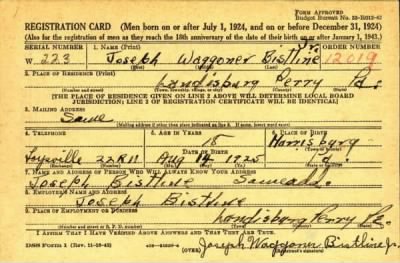 FORM APPROVED
REGISTRATION CARD (Men born on or after July 1, 1924, and on or before December 31, 1924)
(Also for the registration of men as they reach the 18th anniversary of the date of their birth on or after January 1, 1943.)
SERIAL NUMBER 1. NAME (Print) ORDER NUMBER
W 223 Joseph Waggoner Bistline Jr. 12019
2. PLACE OF RESIDENCE (Print)
Landisburg Perry Pa.
[THE PLACE OF RESIDENCE GIVEN ON LINE 2 ABOVE WILL DETERMINE LOCAL BOARD
JURISDICTION; LINE 2 OF REGISTRATION CERTIFICATE WILL BE IDENTICAL]
3. MAILING ADDRESS
Same
4. TELEPHONE 5. AGE IN YEARS 6. PLACE OF BIRTH
18 Harrisburg
DATE OF BIRTH
Loysville 22R11 Aug 14 1925 Pa.
7. NAME AND ADDRESS OF PERSON WHO WILL ALWAYS KNOW YOUR ADDRESS
Joseph Bistline Same add.
8. EMPLOYER'S NAME AND ADDRESS
Joseph Bistline
9. PLACE OF EMPLOYMENT OR BUSINESS
Landisburg Perry Pa.
I AFFIRM THAT I HAVE VERIFIED ABOVE ANSWERS AND THAT THEY ARE TRUE.
DSS FORM 1 (OVER) Joseph Waggoner Bistline Jr.